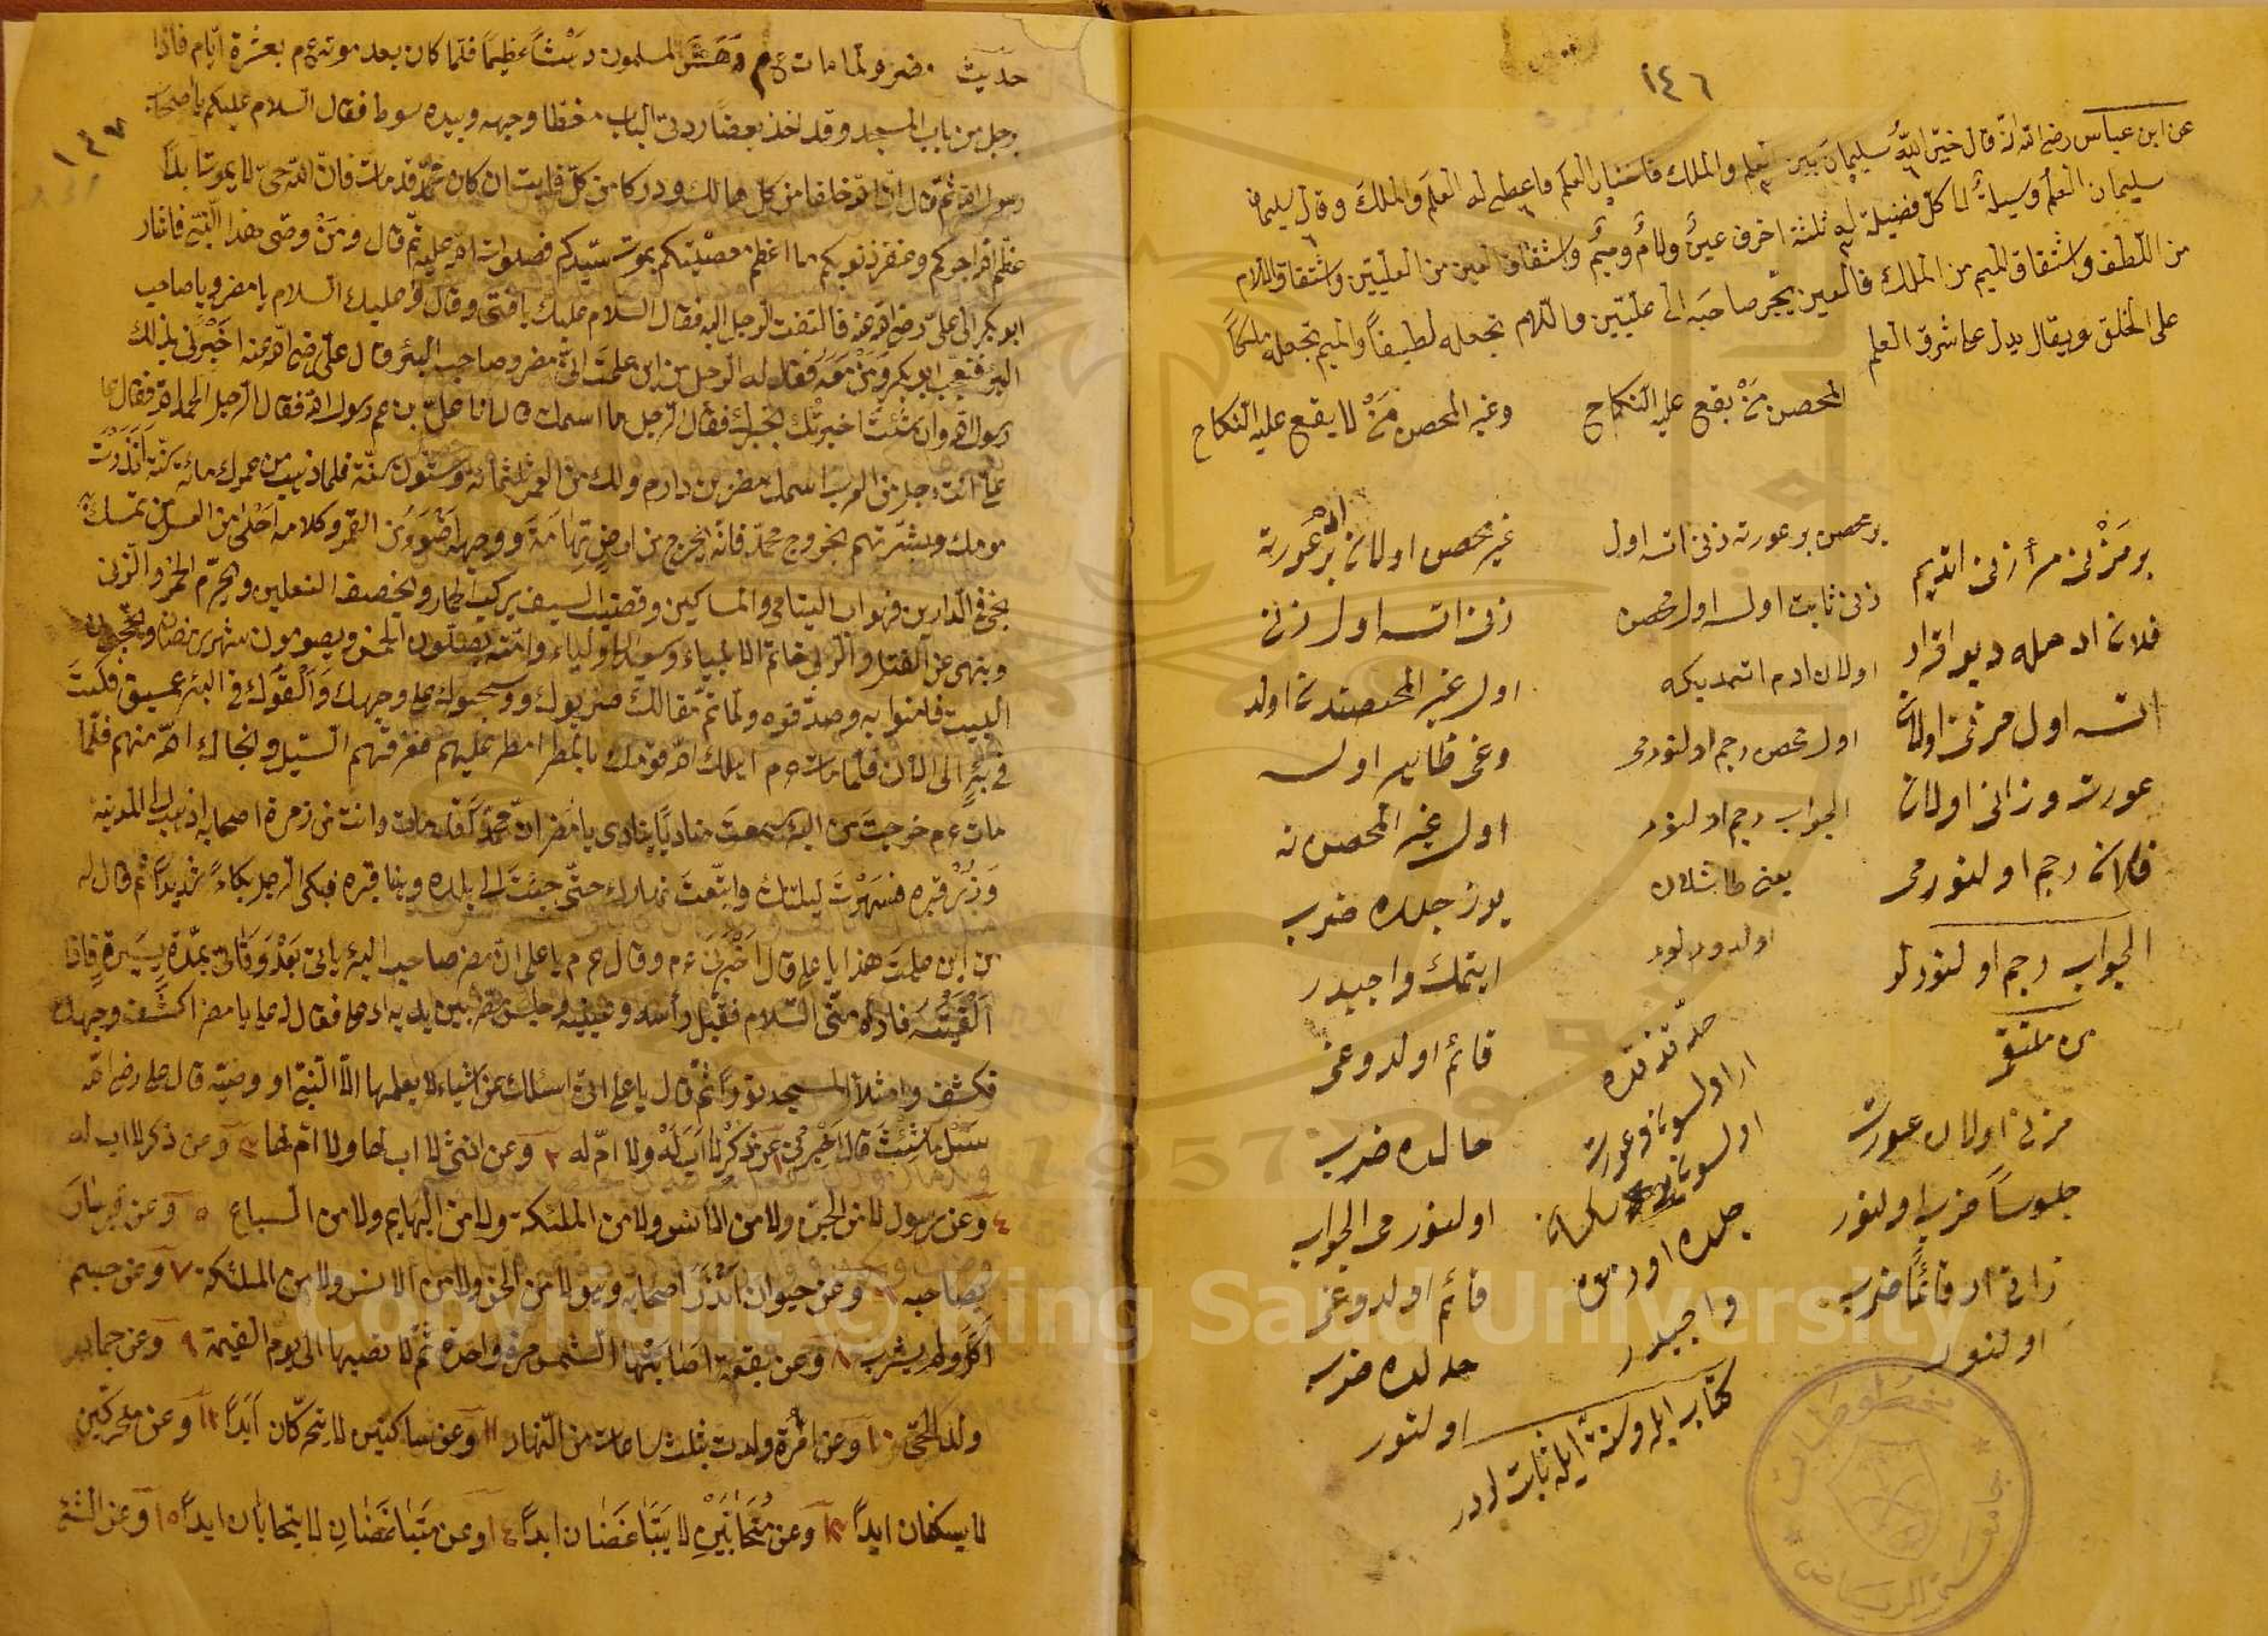 ١٤٦
عن ابن عباس رضى الله انه قال خيّر اللّه سليمانَ بين العلم والملك فاختار العلم فاعطى له العلمَ والملكَ وقال سليمان
سليمان العلمُ وسيلةٌ الى كلّ فضيلة له ثلثة احرف عينٌ ولامٌ وميمٌ واشتقاق العين من العليّين واشتقاق اللام
من اللّطف واشتقاق الميم من الملك فالعين يجّر صاحبَه الى علّيّين واللام تجعله لطيفاً والميم تجعله ملكاً
على الخلق ويقال يدل على شرف العلم
المحصن مَنْ يقع عليه النكاح
وغير المحصن مَنْ لا يقع عليه النكاح
فلان ادمله ديو اقرار
اتسه اول مزنى اولان
عورت وزانى اولان
فلانه رجم اولنورمى
الجواب رجم اولنورلر
مزنى اولان عورت
جلوساً ضرب اولنور
زانى ار قائمًا ضرب
اولنور
بر محصن بر عورته زنى اتسه اول
زنى ثابت اولسه اول محصن
اولان ادم اتمديكه
اول محصن رجم اولنورمى
الجواب رجم اولنور
يعنى طاشلان
حدّ قذفده
ار اولسون وعورت
اولسون
جلده اورمق
واجبدر
كتاب ايله وسنة ايله ثابت اولدر
غير محصن اولان بر عورته
زنى اتسه اول زنى
اول غير المحصندن اولد
وغى ظاهر اولسه
اول غير المحصن نه
يوز جلده ضرب
ايتمك واجبدر
قائم اولدوغى
حالده ضرب
اولنورمى الجواب
قائم اولدوغى
حالده ضرب
اولنور
١٤٧
حديث مضر ولما مات ع م دهش المسلمون دهشاً عظيماً فلما كان بعد موته ع م بعشرة ايّام فاذا
رجل من باب المسجد وقد اخذ بعضا ردتى الباب مغطا وجهه وبيده سوط فقال السلام عليكم يا اصحاب
رسول الله ثمّ قال انّ الله خلفا من كلّ هالك ودركا من كلّ فايت ان كان محمّد قد مات فانّ الله حىّ لا يموت ابداً
عظّم الله اجوركم وغفر ذنوبكم ما اعظم مصيبتكم بموت سيّدكم فصلوات الله عليه ثم قال ومَنْ وصّى هذا النّبىّ فاشار
ابو بكر الى علىّ رضى الله عنه فالتفت الرجل اليه فقال السلام عليك يا فتى وقال وعليك السلام يا مضر ويا صاحب
البئر فتعجّب ابو بكر وَمَنْ مَعَهُ فقال له الرجل من اين علمتَ انّى مضر وصاحب البئر وقال علىّ رضى الله عنه اَخْبَرَنى بذلك
رسول الله وان شئتَ اخبرتك بخبرك فقال الرجل ما اسمك قال انا علىّ بن عم رسول الله فقال الرجل الحمد لله فقال على
علىّ انت رجل من العرب اسمك مضر بن دارم ولك من العمر ثلثمائة وستّون سنّة فلما ذهب من عمرك مائة سنّة اَنْذَرْتَ
قومك وبشّرتهم بخروج محمّد فانّه يخرج من ارضِ تِهَامَةَ وَوجهه اَضْوَءُ من القمر وكلامه اَحْلى من العسل من تمسّك به
نجى فى الدارين وهو اب اليتامى والمساكين وقضيب السيف يركب الحمار ويخصف النعلين ويحرّم الخمر والزنى
وينهى عن القتل والربى خاتم الانبياء وسيد الاولياء وامّته يصلّون الخمس ويصومون شهر رمضان ويحجّون
البيت فامنوا به وصدّقوه ولمّا تمّ مقالك ضربوك وسحبوك على وجهك وَاَلْقَوْك فى البئر عميق فكنتَ
فى بئرٍ الى الآن فلمّا مات ع م اهلك الله قومك بالمطر امطر عليهم فغرقتهم السّيل ونجاك الله منهم فلمّا
مات ع م خرجتَ من البئر سمعتَ مناديًا ينادى يا مضر انّ محمّدًا قد مات وانت من زمرة اصحابه اذهب الى المدينة
وَزُرْ قبره فسَهِرْتَ ليلتك واتّعبتَ نهارك حتّى جئتَ الى بلده وبنا قبره فبكى الرّجل بكاءً شديداً ثم قال له
من اين علمتَ هذا يا على قال اَخْبَرَنى ع م وقال ع م يا على انّ مضر صاحب البئر ياتى بَعْدَ وَفَاتى بمدّة يسيرة فاذا
اَلْقَيْتَه فادّه منّى السّلام فقبّل رأسه وعينيه وجلس مضر بين يديه ادبا فقال له على يا مضر اكشف وجهك
فكشف وامتلأ المسجد نورًا ثم قال يا على انّى اسئلك عن اشياء لا يعلمها الّا النّبىّ او وصيّه قال على رضى الله
سَلْ ما شِئتَ قال اَخْبِرْنى ١ عن ذكرٍ لا اَبَ لَهُ ولا امّ له ٢ وعن انثى لا اب لها ولا امّ لها ٣ وعن ذكر لا اب له
٤ وعن رسول لا من الجنّ ولا من الانس ولا من الملئكة ولا من البهايم ولا من السباع ٥ وعن قبر سارَ
بصاحبه ٦ وعن حيوان اَنْذَرَ اصحابه وهو لا من الجن ولا من الانس ولا من الملئكة ٧ وعن جسم
اَكَلَ ولم يشرب ٨ وعن بقعة اصابتها الشمس مرة واحدة ثمّ لا تصيبها الى يوم القيمة ٩ وعن جماد
ولد الحىّ ١٠ وعن امْرَة ولدت بثلث ساعات من النّهار ١١ وعن ساكنين لا يتحرّكان اَبَدًا ١٢ وعن متحركين
لا يسكنان ابداً ١٣ وعن مُتَحَابَّيْنِ لا يَتَبَاغَضَان ابداً ١٤ وعن متباغضان لا يتحابان ابداً ١٥ وعن الشئ
مخطوطات
جامعة الرياض
1957
Copyright © King Saud University